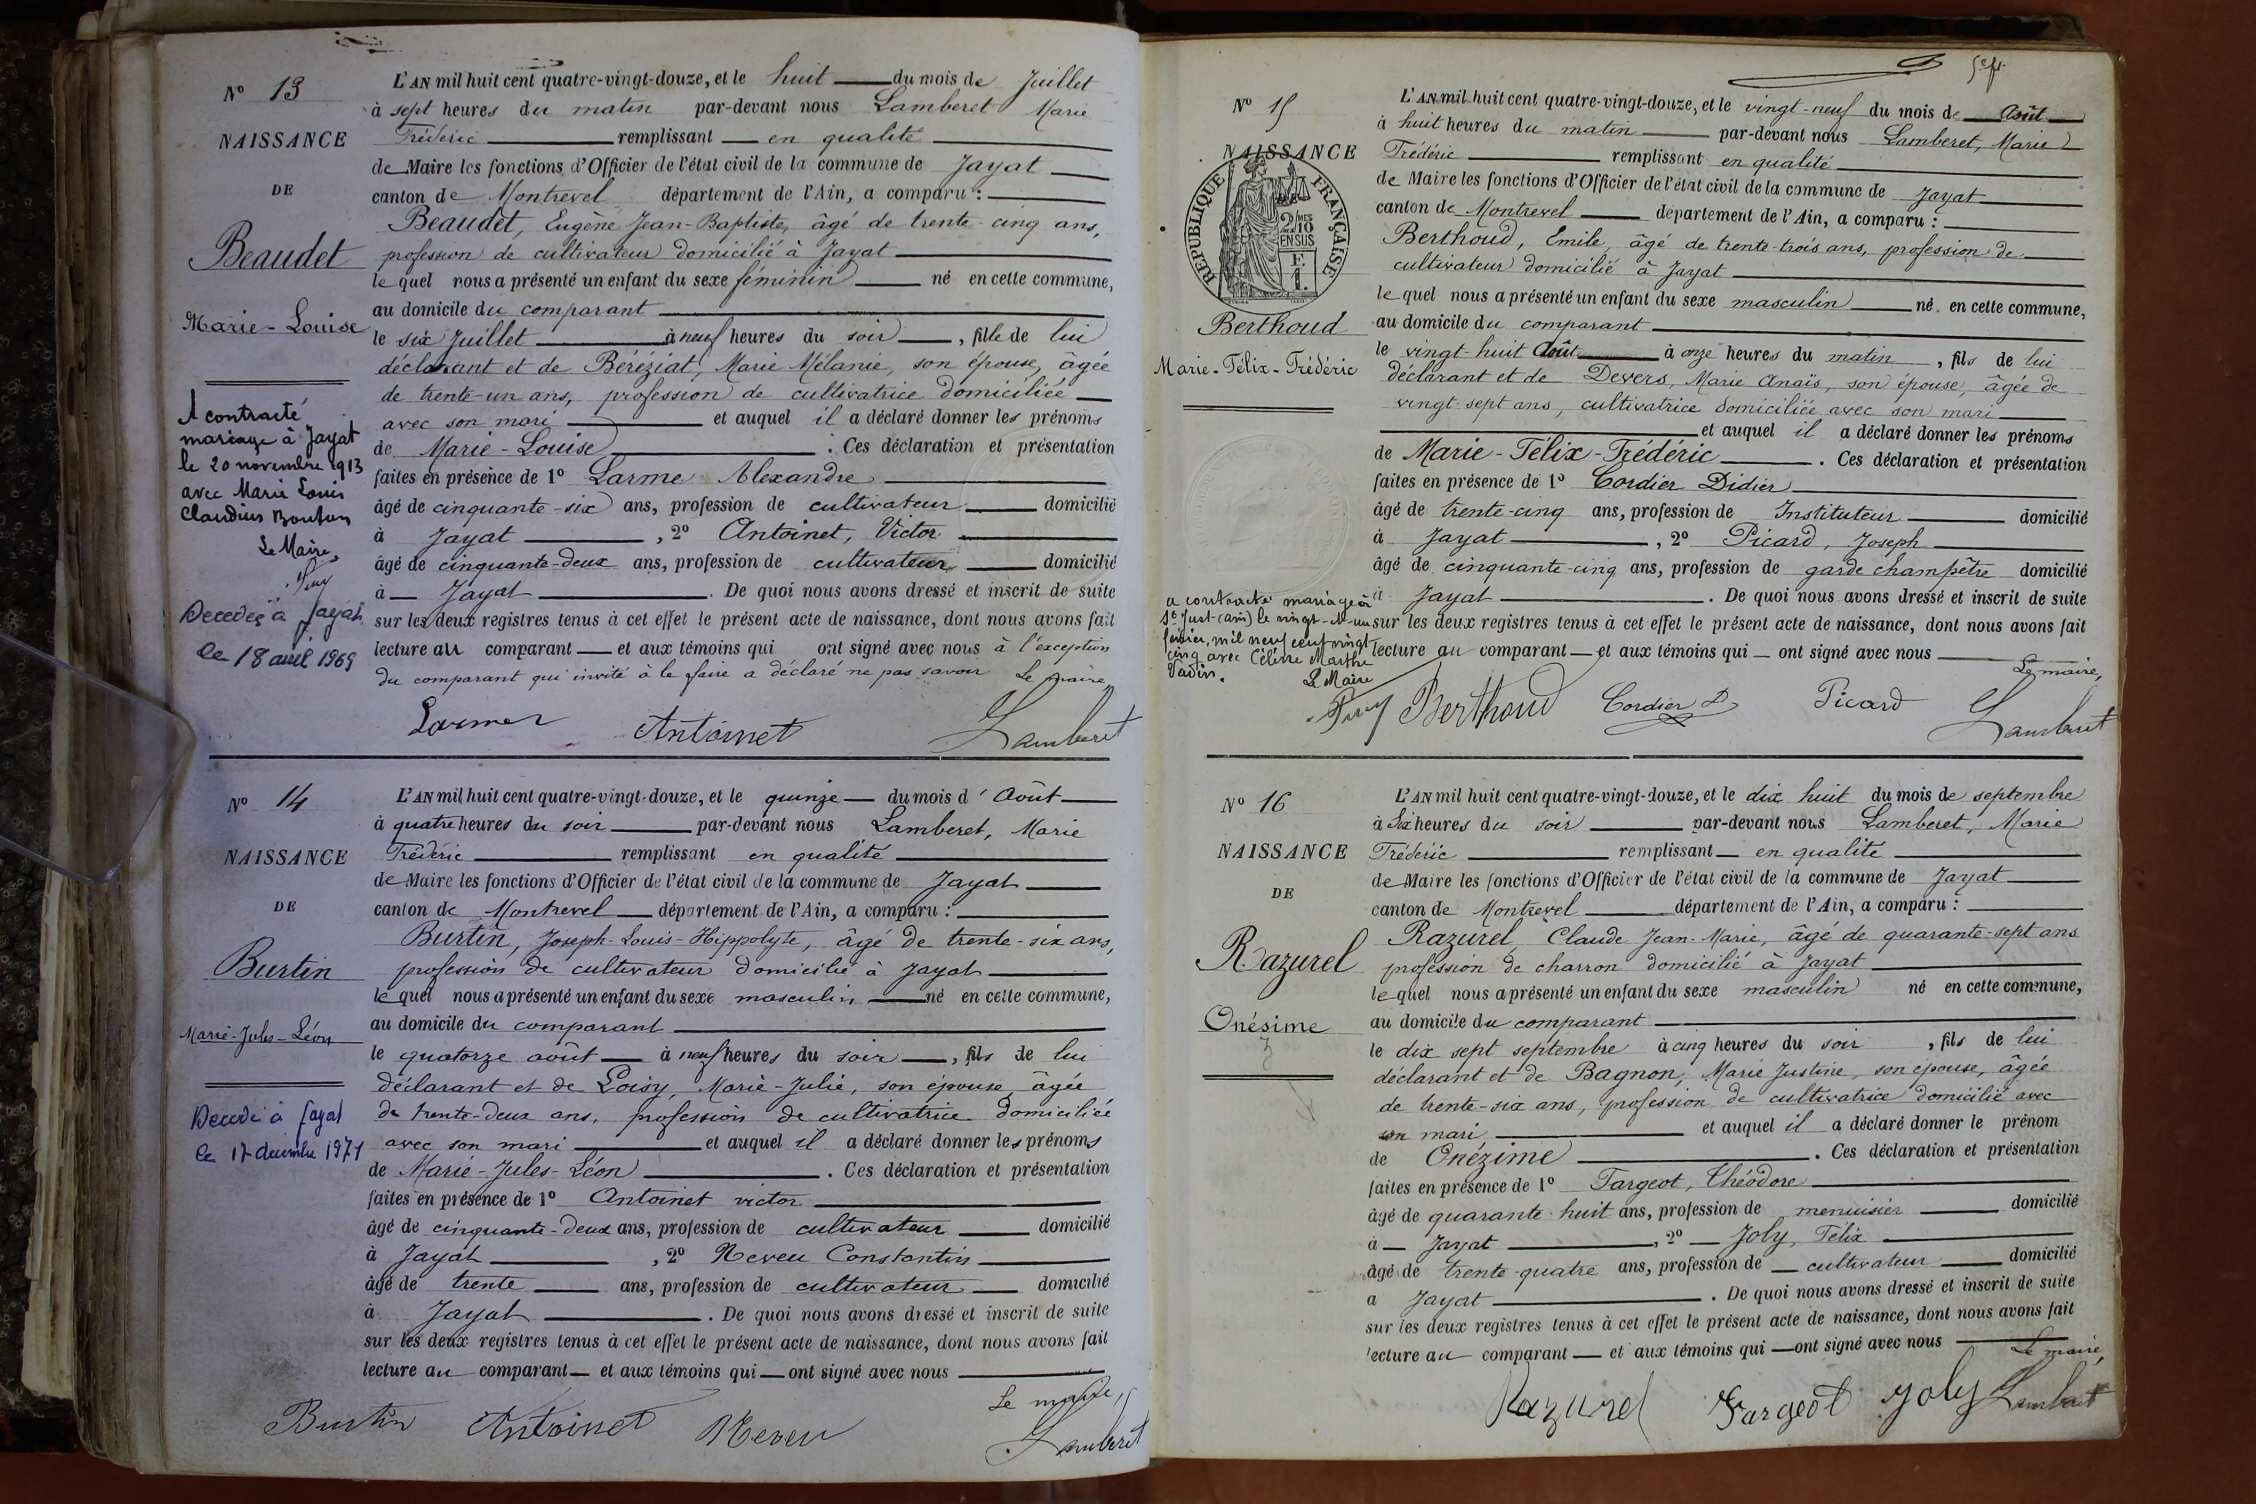 N° 13
NAISSANCE
DE
Beaudet
Marie-Louise
A contracté
mariage à Jayat
le 20 novembre 1913
avec Marie Louis
Claudius Bouton
Le Maire,
Decedeé à Jayat
le 18 avril 1969
L'AN mil huit cent quatre-vingt-douze, et le huit du mois de Juillet
à sept heures du matin par-devant nous Lamberet Marie
Frédéric remplissant en qualité
de Maire les fonctions d'Officier de l'état civil de la commune de Jayat
canton de Montrevel département de l'Ain, a comparu :
Beaudet, Eugène Jean-Baptiste, âgé de trente-cinq ans,
profession de cultivateur domicilié à Jayat
lequel nous a présenté un enfant du sexe féminin né en cette commune,
au domicile du comparant
le six Juillet à neuf heures du soir, fille de lui
déclarant et de Béréziat, Marie Mélanie, son épouse, âgée
de trente-un ans, profession de cultivatrice domiciliée
avec son mari et auquel il a déclaré donner les prénoms
de Marie-Louise. Ces déclaration et présentation
faites en présence de 1° Larme Alexandre
âgé de cinquante-six ans, profession de cultivateur domicilié
à Jayat, 2° Antoinet, Victor
âgé de cinquante-deux ans, profession de cultivateur domicilié
à Jayat. De quoi nous avons dressé et inscrit de suite
sur les deux registres tenus à cet effet le présent acte de naissance, dont nous avons fait
lecture au comparant et aux témoins qui ont signé avec nous à l'exception
du comparant qui invité à le faire a déclaré ne pas savoir Le maire,
Larmer Antoinet Lamberet
N° 14
NAISSANCE
DE
Burtin
Marie-Jules-Léon
Decedé à Jayat
le 17 decembre 1971
L'AN mil huit cent quatre-vingt-douze, et le quinze du mois d'Août
à quatre heures du soir par-devant nous Lamberet, Marie
Frédéric remplissant en qualité
de Maire les fonctions d'Officier de l'état civil de la commune de Jayat
canton de Montrevel département de l'Ain, a comparu :
Burtin, Joseph-Louis-Hippolyte, âgé de trente-six ans,
profession de cultivateur domicilié à Jayat
lequel nous a présenté un enfant du sexe masculin né en cette commune,
au domicile du comparant
le quatorze août à neuf heures du soir, fils de lui
déclarant et de Loisy, Marie-Julie, son épouse, âgée
de trente-deux ans, profession de cultivatrice domiciliée
avec son mari et auquel il a déclaré donner les prénoms
de Marie-Jules-Léon. Ces déclaration et présentation
faites en présence de 1° Antoinet victor
âgé de cinquante-deux ans, profession de cultivateur domicilié
à Jayat, 2° Neveu Constantin
âgé de trente ans, profession de cultivateur domicilié
à Jayat. De quoi nous avons dressé et inscrit de suite
sur les deux registres tenus à cet effet le présent acte de naissance, dont nous avons fait
lecture au comparant et aux témoins qui ont signé avec nous
Le maire,
Burtin Antoinet Neveu Lamberet
Sept.
N° 15
NAISSANCE
RÉPUBLIQUE FRANÇAISE
2/10 MES EN SUS
F. 1.
Berthoud
Marie-Félix-Frédéric
a contracté mariage à
St Just (ain) le vingt-et-un
février, mil neuf cent vingt
cinq avec Célérie Marthe
Vadin.
Le Maire
L'AN mil huit cent quatre-vingt-douze, et le vingt-neuf du mois de Août
à huit heures du matin par-devant nous Lamberet, Marie
Frédéric remplissant en qualité
de Maire les fonctions d'Officier de l'état civil de la commune de Jayat
canton de Montrevel département de l'Ain, a comparu :
Berthoud, Emile, âgé de trente-trois ans, profession de
cultivateur domicilié à Jayat
lequel nous a présenté un enfant du sexe masculin né en cette commune,
au domicile du comparant
le vingt-huit Août à onze heures du matin, fils de lui
déclarant et de Devers, Marie Anaïs, son épouse, âgée de
vingt-sept ans, cultivatrice domiciliée avec son mari
et auquel il a déclaré donner les prénoms
de Marie-Félix-Frédéric. Ces déclaration et présentation
faites en présence de 1° Cordier Didier
âgé de trente-cinq ans, profession de Instituteur domicilié
à Jayat, 2° Picard, Joseph
âgé de cinquante-cinq ans, profession de garde champêtre domicilié
à Jayat. De quoi nous avons dressé et inscrit de suite
sur les deux registres tenus à cet effet le présent acte de naissance, dont nous avons fait
lecture au comparant et aux témoins qui ont signé avec nous
Le maire,
Berthoud Cordier D Picard Lamberet
N° 16
NAISSANCE
DE
Razurel
Onésime
L'AN mil huit cent quatre-vingt-douze, et le dix huit du mois de septembre
à Six heures du soir par-devant nous Lamberet, Marie
Frédéric remplissant en qualité
de Maire les fonctions d'Officier de l'état civil de la commune de Jayat
canton de Montrevel département de l'Ain, a comparu :
Razurel, Claude Jean-Marie, âgé de quarante-sept ans
profession de charron domicilié à Jayat
lequel nous a présenté un enfant du sexe masculin né en cette commune,
au domicile du comparant
le dix sept septembre à cinq heures du soir, fils de lui
déclarant et de Bagnon, Marie Justine, son épouse, âgée
de trente-six ans, profession de cultivatrice domicilié avec
son mari et auquel il a déclaré donner le prénom
de Onézime. Ces déclaration et présentation
faites en présence de 1° Fargeot, Théodore
âgé de quarante-huit ans, profession de menuisier domicilié
à Jayat, 2° Joly, Félix
âgé de trente-quatre ans, profession de cultivateur domicilié
a Jayat. De quoi nous avons dressé et inscrit de suite
sur les deux registres tenus à cet effet le présent acte de naissance, dont nous avons fait
lecture au comparant et aux témoins qui ont signé avec nous
Le maire,
Razurel Fargeot Joly Lamberet